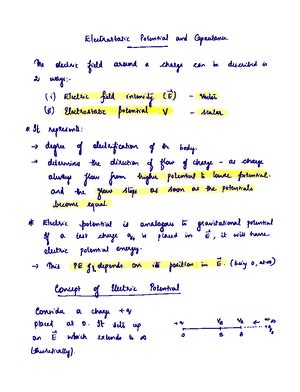 Electrostatic Potential and Capacitance
The electric field around a charge can be described in
2 ways:-
(i) Electric field intensity (E⃗) - Vector
(ii) Electrostatic potential V - scalar
* It represents:
→ degree of electrification of the body.
→ determine the direction of flow of charge - as charge
always flow from higher potential to lower potential.
and the flow stops as soon as the potentials
become equal.
* Electric potential is analogous to gravitational potential
If a test charge q₀ is placed in E⃗, it will have
electric potential energy.
→ This PE depends on its position in E⃗. (being 0, at ∞)
Concept of Electric Potential
Consider a charge +q
placed at O. It sets up
an E⃗ which extends to ∞
(theoretically).
+q
O B A